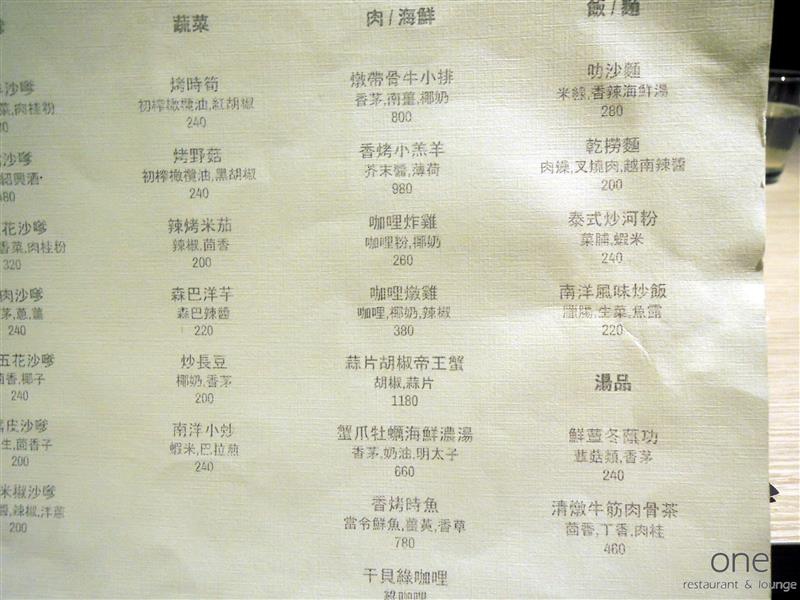 沙嗲
菜,肉桂粉
沙嗲
紹興酒
480
花沙嗲
香菜,肉桂粉
320
肉沙嗲
茅,蔥,薑
240
五花沙嗲
茴香,椰子
240
皮沙嗲
生,茴香子
200
米椒沙嗲
醬,辣椒,洋蔥
200
蔬菜
烤時筍
初榨橄欖油,紅胡椒
240
烤野菇
初榨橄欖油,黑胡椒
240
辣烤米茄
辣椒,茴香
200
森巴洋芋
森巴辣醬
220
炒長豆
椰奶,香茅
200
南洋小炒
蝦米,巴拉煎
240
肉/海鮮
燉帶骨牛小排
香茅,南薑,椰奶
800
香烤小羔羊
芥末醬,薄荷
980
咖哩炸雞
咖哩粉,椰奶
260
咖哩燉雞
咖哩,椰奶,辣椒
380
蒜片胡椒帝王蟹
胡椒,蒜片
1180
蟹爪牡蠣海鮮濃湯
香茅,奶油,明太子
660
香烤時魚
當令鮮魚,薑黃,香草
780
干貝綠咖哩
綠咖哩
飯/麵
叻沙麵
米線,香辣海鮮湯
280
乾撈麵
肉燥,叉燒肉,越南辣醬
200
泰式炒河粉
菜脯,蝦米
240
南洋風味炒飯
臘腸,生菜,魚露
220
湯品
鮮蔬冬蔭功
菇類,香茅
240
清燉牛筋肉骨茶
茴香,丁香,肉桂
460
one
restaurant & lounge